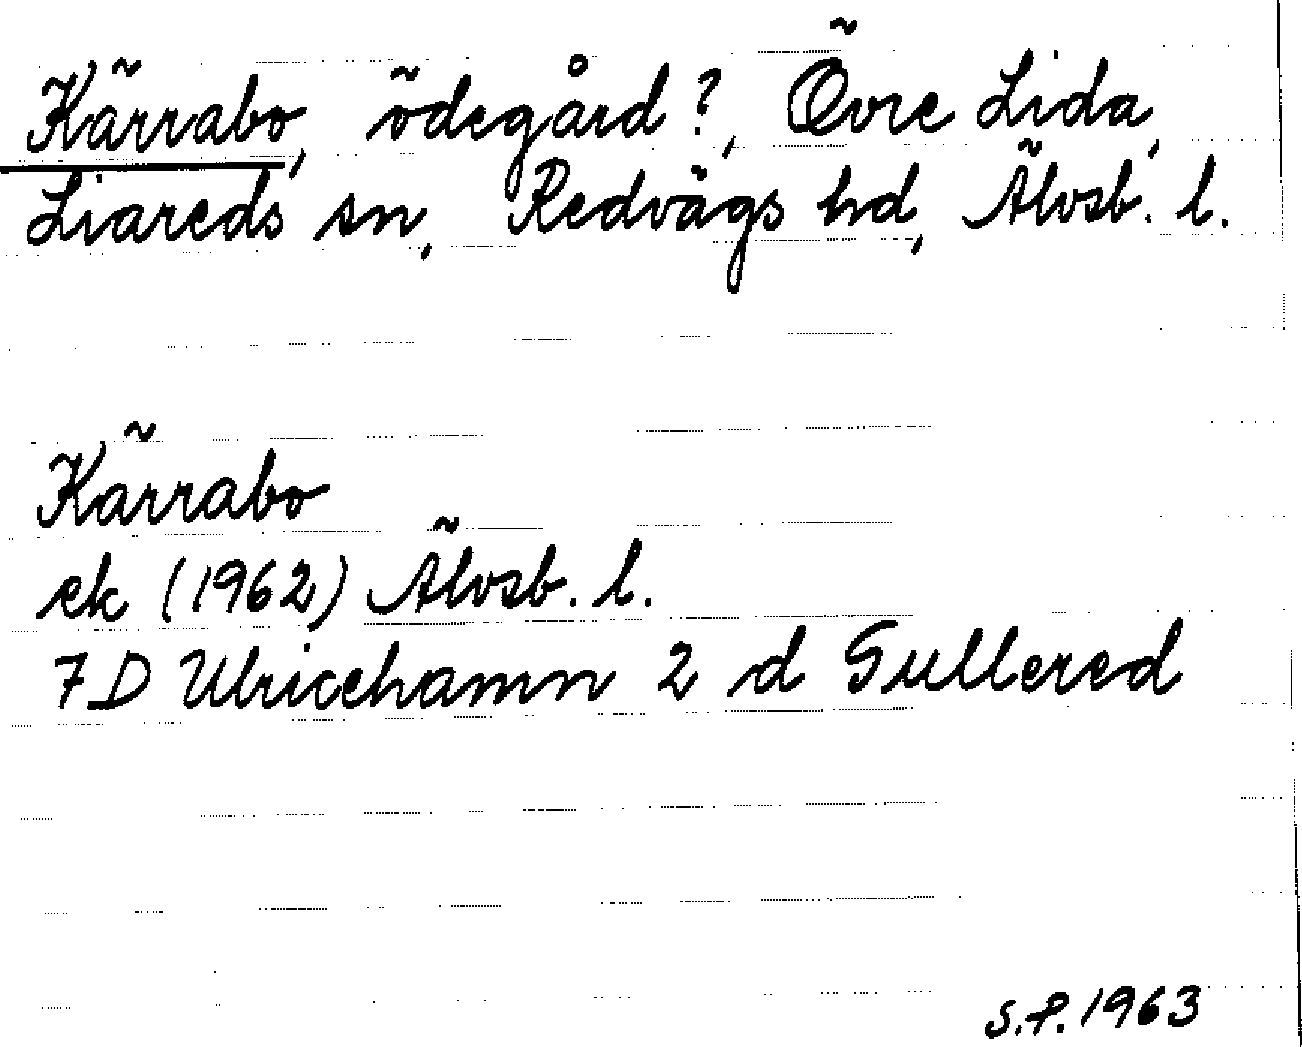 Kärrabo, ödegård?, Övre Lida,
Liareds sn, Redvägs hd, Älvsb. l.
Kärrabo
ek (1962) Älvsb. l.
7D Ulricehamn 2 d Gullered
S.P. 1963